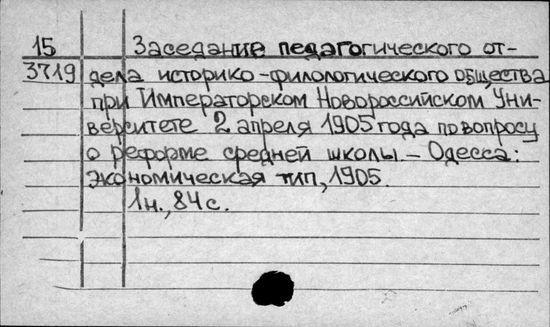 15 Заседание педагогического от-
3719 дела историко-филологического общества
при Императорском Новороссийском Уни-
верситете 2 апреля 1905 года по вопросу
о реформе средней школы. – Одесса:
Экономическая тип., 1905.
1н., 84 с.